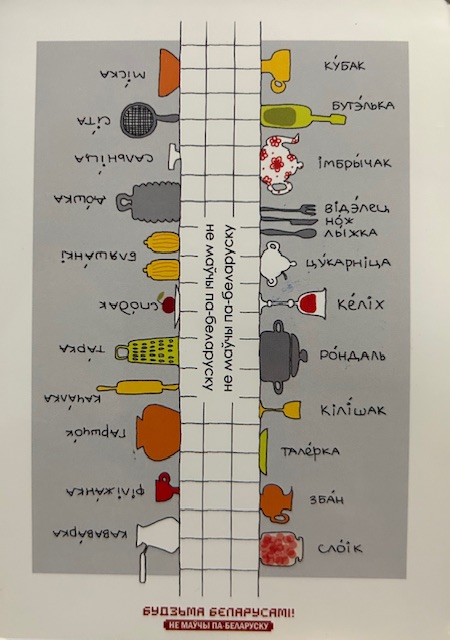 МІ́СКА
СІ́ТА
САЛЬНІ́ЦА
ДО́ШКА
БЛЯША́НКІ
СПО́ДАК
ТА́РКА
КАЧА́ЛКА
ГАРШЧО́К
ФІЛІЖА́НКА
КАВАВА́РКА
не маўчы па-беларуску
не маўчы па-беларуску
КУ́БАК
БУТЭ́ЛЬКА
ІМБРЫ́ЧАК
ВІДЭ́ЛЕЦ
НОЖ
ЛЫ́ЖКА
ЦУ́КАРНІЦА
КЕ́ЛІХ
РО́НДАЛЬ
КІ́ЛІШАК
ТАЛЕ́РКА
ЗБАН
СЛО́ІК
БУДЗЬМА БЕЛАРУСАМІ!
НЕ МАЎЧЫ ПА-БЕЛАРУСКУ